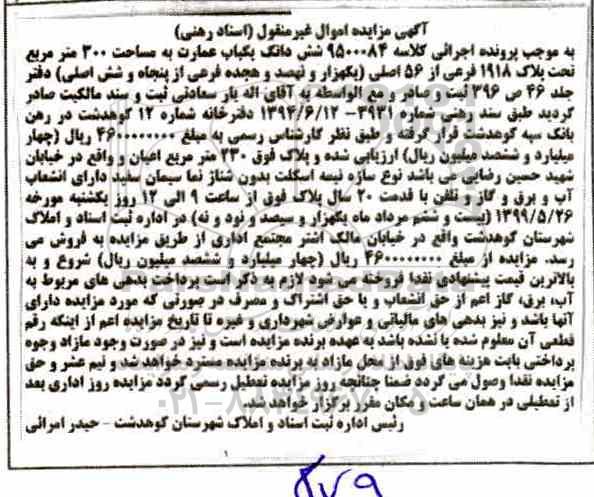 آگهی مزایده اموال غیرمنقول (اسناد رهنی)
به موجب پرونده اجرائی کلاسه ۹۵۰۰۰۸۴ شش دانگ یکباب عمارت به مساحت ۳۰۰ متر مربع
تحت پلاک ۱۹۱۸ فرعی از ۵۶ اصلی (یکهزار و نهصد و هجده فرعی از پنجاه و شش اصلی) دفتر
جلد ۴۶ ص ۳۹۶ ثبت و صادر و مع الواسطه به آقای اله یار سعادتی ثبت و سند مالکیت صادر
گردید طبق سند رهنی شماره ۳۹۳۱- ۱۳۹۴/۶/۱۲ دفترخانه شماره ۱۲ کوهدشت در رهن
بانک سپه کوهدشت قرار گرفته و طبق نظر کارشناس رسمی به مبلغ ۴۶۰۰۰۰۰۰۰۰ ریال (چهار
میلیارد و ششصد میلیون ریال) ارزیابی شده و پلاک فوق ۲۳۰ متر مربع اعیان و واقع در خیابان
شهید حسین رضایی می باشد نوع سازه نیمه اسکلت بدون شناژ نما سیمان سفید دارای انشعاب
آب و برق و گاز و تلفن با قدمت ۲۰ سال پلاک فوق از ساعت ۹ الی ۱۲ روز یکشنبه مورخه
۱۳۹۹/۵/۲۶ (بیست و ششم مرداد ماه یکهزار و سیصد و نود و نه) در اداره ثبت اسناد و املاک
شهرستان کوهدشت واقع در خیابان مالک اشتر مجتمع اداری از طریق مزایده به فروش می
رسد. مزایده از مبلغ ۴۶۰۰۰۰۰۰۰۰ ریال (چهار میلیارد و ششصد میلیون ریال) شروع و به
بالاترین قیمت پیشنهادی نقدا فروخته می شود لازم به ذکر است پرداخت بدهی های مربوط به
آب، برق، گاز اعم از حق انشعاب و یا حق اشتراک و مصرف در صورتی که مورد مزایده دارای
آنها باشد و نیز بدهی های مالیاتی و عوارض شهرداری و غیره تا تاریخ مزایده اعم از اینکه رقم
قطعی آن معلوم شده یا نشده باشد به عهده برنده مزایده است و نیز در صورت وجود مازاد وجوه
پرداختی بابت هزینه های فوق از محل مازاد به برنده مزایده مسترد خواهد شد و نیم عشر و حق
مزایده نقدا وصول می گردد ضمنا چنانچه روز مزایده تعطیل رسمی گردد مزایده روز اداری بعد
از تعطیلی در همان ساعت و مکان مقرر برگزار خواهد شد.
رئیس اداره ثبت اسناد و املاک شهرستان کوهدشت - حیدر امرائی
۱
۸۷۹